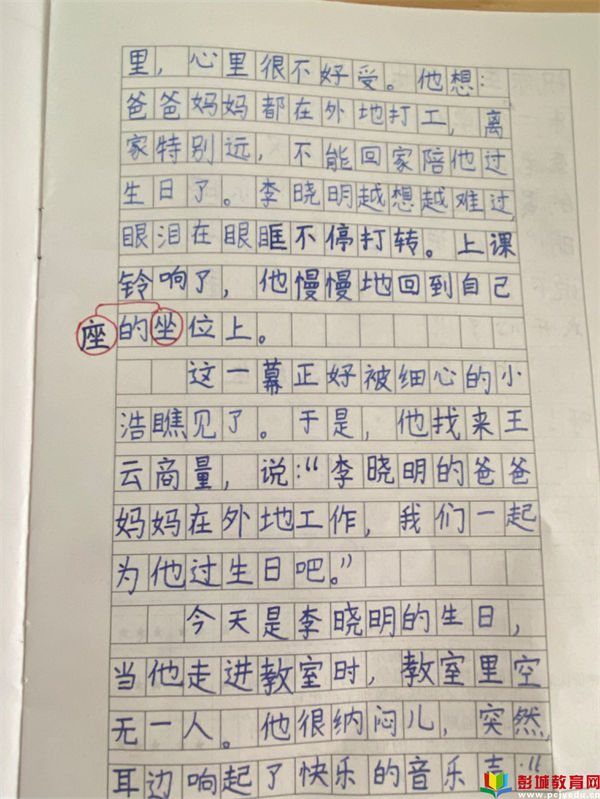 里，心里很不好受。他想：
爸爸妈妈都在外地打工，离
家特别远，不能回家陪他过
生日了。李晓明越想越难过，
眼泪在眼眶不停打转。上课
铃响了，他慢慢地回到自己
座的坐位上。
这一幕正好被细心的小
浩瞧见了。于是，他找来王
云商量，说：“李晓明的爸爸
妈妈在外地工作，我们一起
为他过生日吧。”
今天是李晓明的生日，
当他走进教室时，教室里空
无一人。他很纳闷儿，突然，
耳边响起了快乐的音乐声：“
彭城教育网
www.pcjyedu.cn